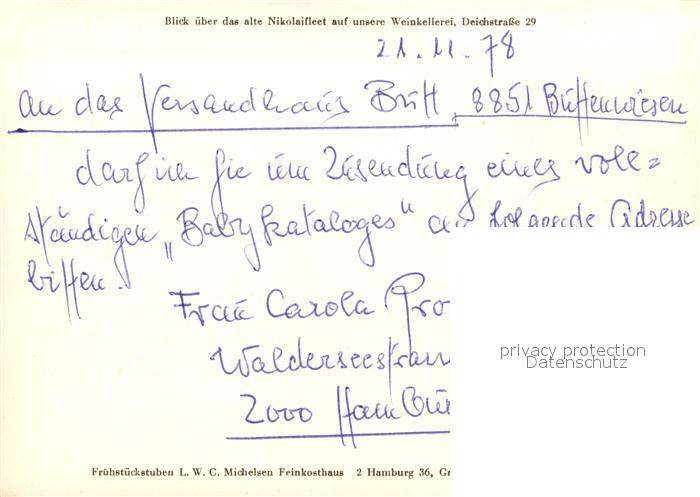 Blick über das alte Nikolaifleet auf unsere Weinkellerei, Deichstraße 29
21.11.78
An das Versandhaus Butt, 8851 Buttenwiesen
darf ich Sie um Zusendung eines voll=
ständigen „Babykataloges" an folgende Adresse
bitten.
Frau Carola Gro
Walderseestra
2000 Hambur
privacy protection
Datenschutz
Frühstückstuben L. W. C. Michelsen Feinkosthaus 2 Hamburg 36, Gr